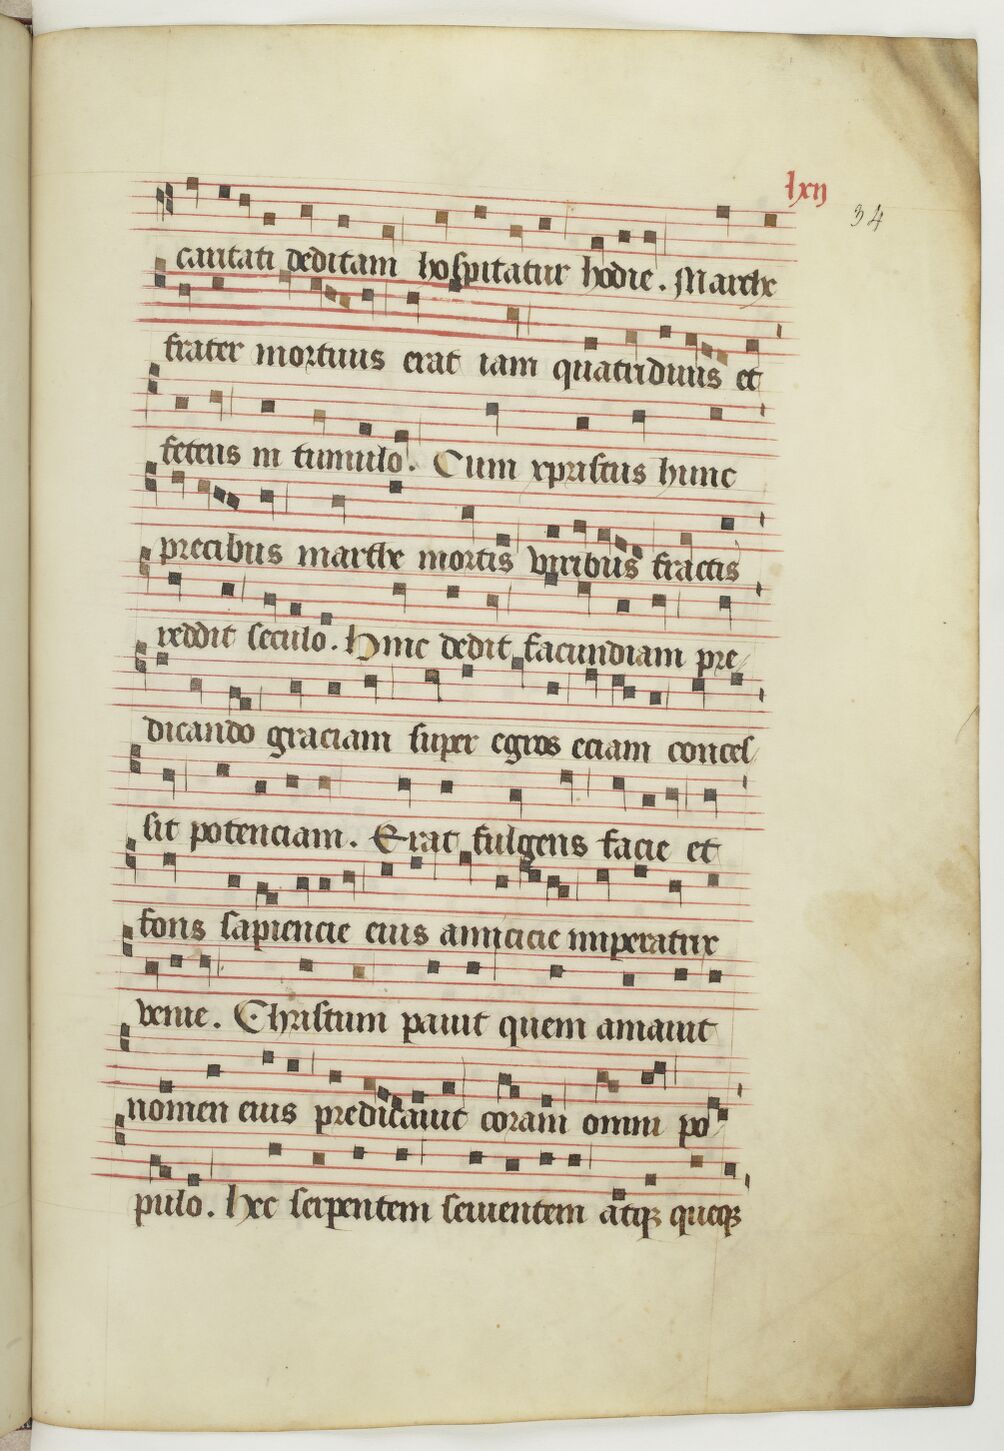 lxij
34
caritati deditam hospitatur hodie. Marthe
frater mortuus erat iam quatriduus et
fetens in tumulo. Cum xpristus hunc
precibus marthe mortis viribus fractis
reddit seculo. Hinc dedit facundiam pre-
dicando graciam super egros eciam conces-
sit potenciam. Erat fulgens facie et
fons sapiencie eius amicicie imperatrix
venie. Christum pauit quem amauit
nomen eius predicauit coram omni po
pulo. Hec serpentem seuientem atqꝫ queqꝫ